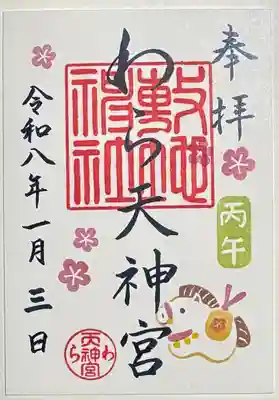 奉拝
丙午
敷地神社
わら天神宮
令和八年一月三日
わら天神宮